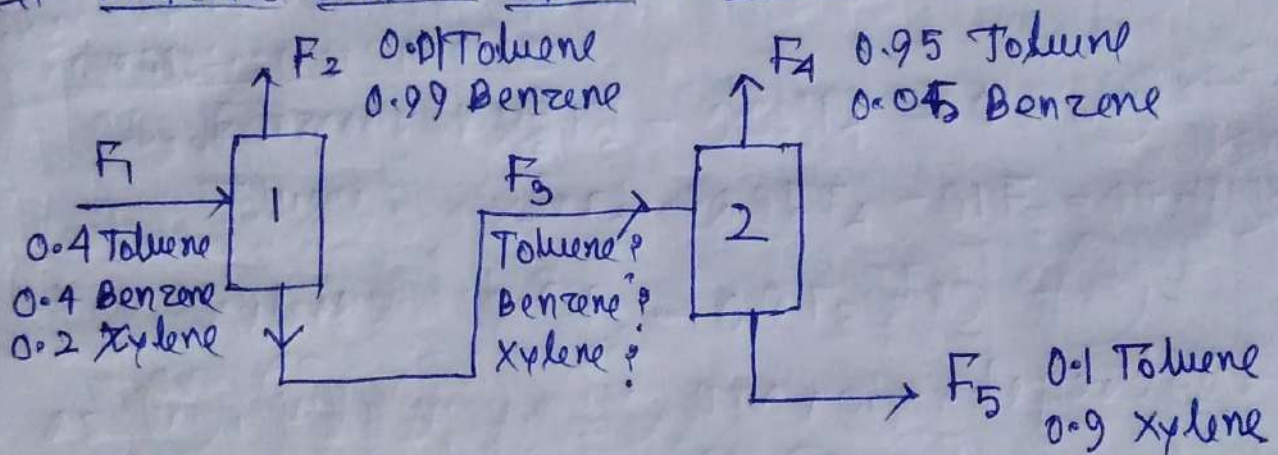 F2 0.01 Toluene
0.99 Benzene
F4 0.95 Toluene
0.05 Benzene
F1
1
0.4 Toluene
0.4 Benzene
0.2 Xylene
F3
Toluene?
Benzene?
Xylene?
2
F5 0.1 Toluene
0.9 Xylene